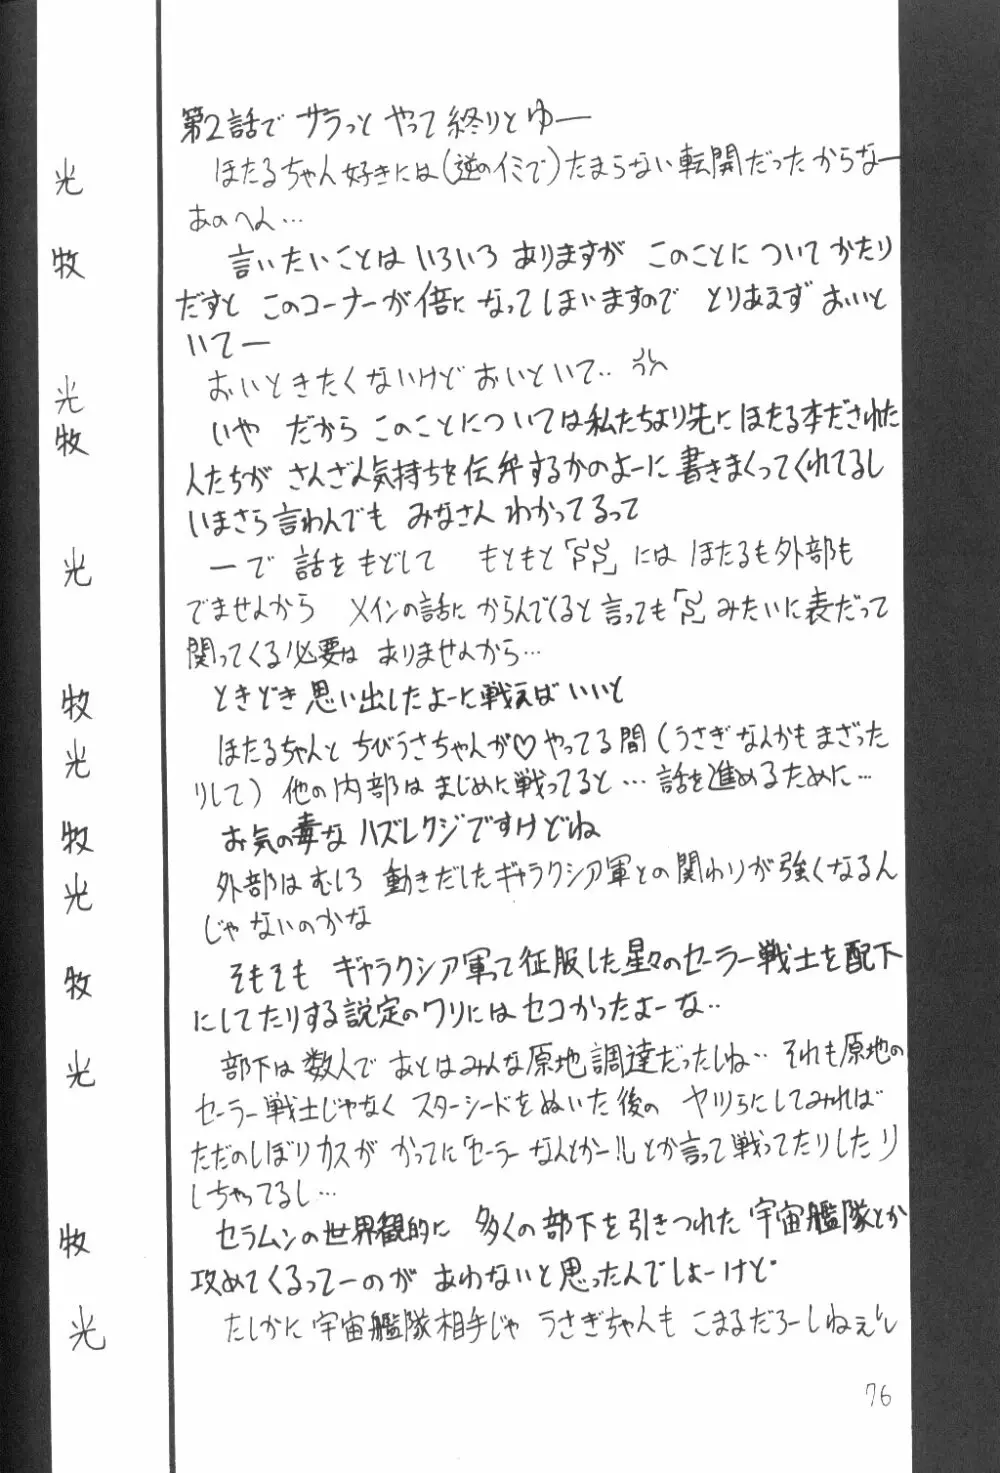 第2話で サラっと やって 終りとゆー
光 ほたるちゃん好きには(逆のイミで)たまらない転開だったからなー
あのへん…
牧 言いたいことは いろいろ ありますが このことに ついて かたり
だすと このコーナーが倍に なって しまいますので とりあえず おいと
いてー
光 おいときたくないけど おいといて‥
牧 いや だから このことについては私たちより先に ほたる本だされた
人たちが さんざん気持ちを伝弁するかのよーに 書きまくってくれてるし
いまさら 言わんでも みなさん わかってるって
光 ーで 話を もどして もともと「SS」には ほたるも外部も
でませんから メインの話に からんでくると言っても「S」みたいに表だって
関ってくる必要は ありませんから…
牧 ときどき 思い出したよーに戦えば いいと
光 ほたるちゃんと ちびうさちゃんが♡やってる間(うさぎなんかもまざった
りして) 他の内部は まじめに戦ってると…話を進めるために…
牧 お気の毒な ハズレクジですけどね
光 外部は むしろ 動きだしたギャラクシア軍との関わりが強くなるん
じゃないのかな
牧 そもそも ギャラクシア軍って征服した星々のセーラー戦士を配下
にしてたりする設定のワリには セコかったよーな‥
光 部下は数人で あとはみんな原地調達だったしね‥それも原地の
セーラー戦士じゃなく スターシードをぬいた後の ヤツらにしてみれば
ただのしぼりカスが かってに「セーラー なんとかー!!」とか言って戦ってたりしたり
しちゃってるし…
牧 セラムンの世界観的に 多くの部下を引きつれた 宇宙艦隊とか
攻めてくるってーのが あわないと思ったんでしょーけど
光 たしかに 宇宙艦隊相手じゃ うさぎちゃんも こまるだろーしねぇ
76